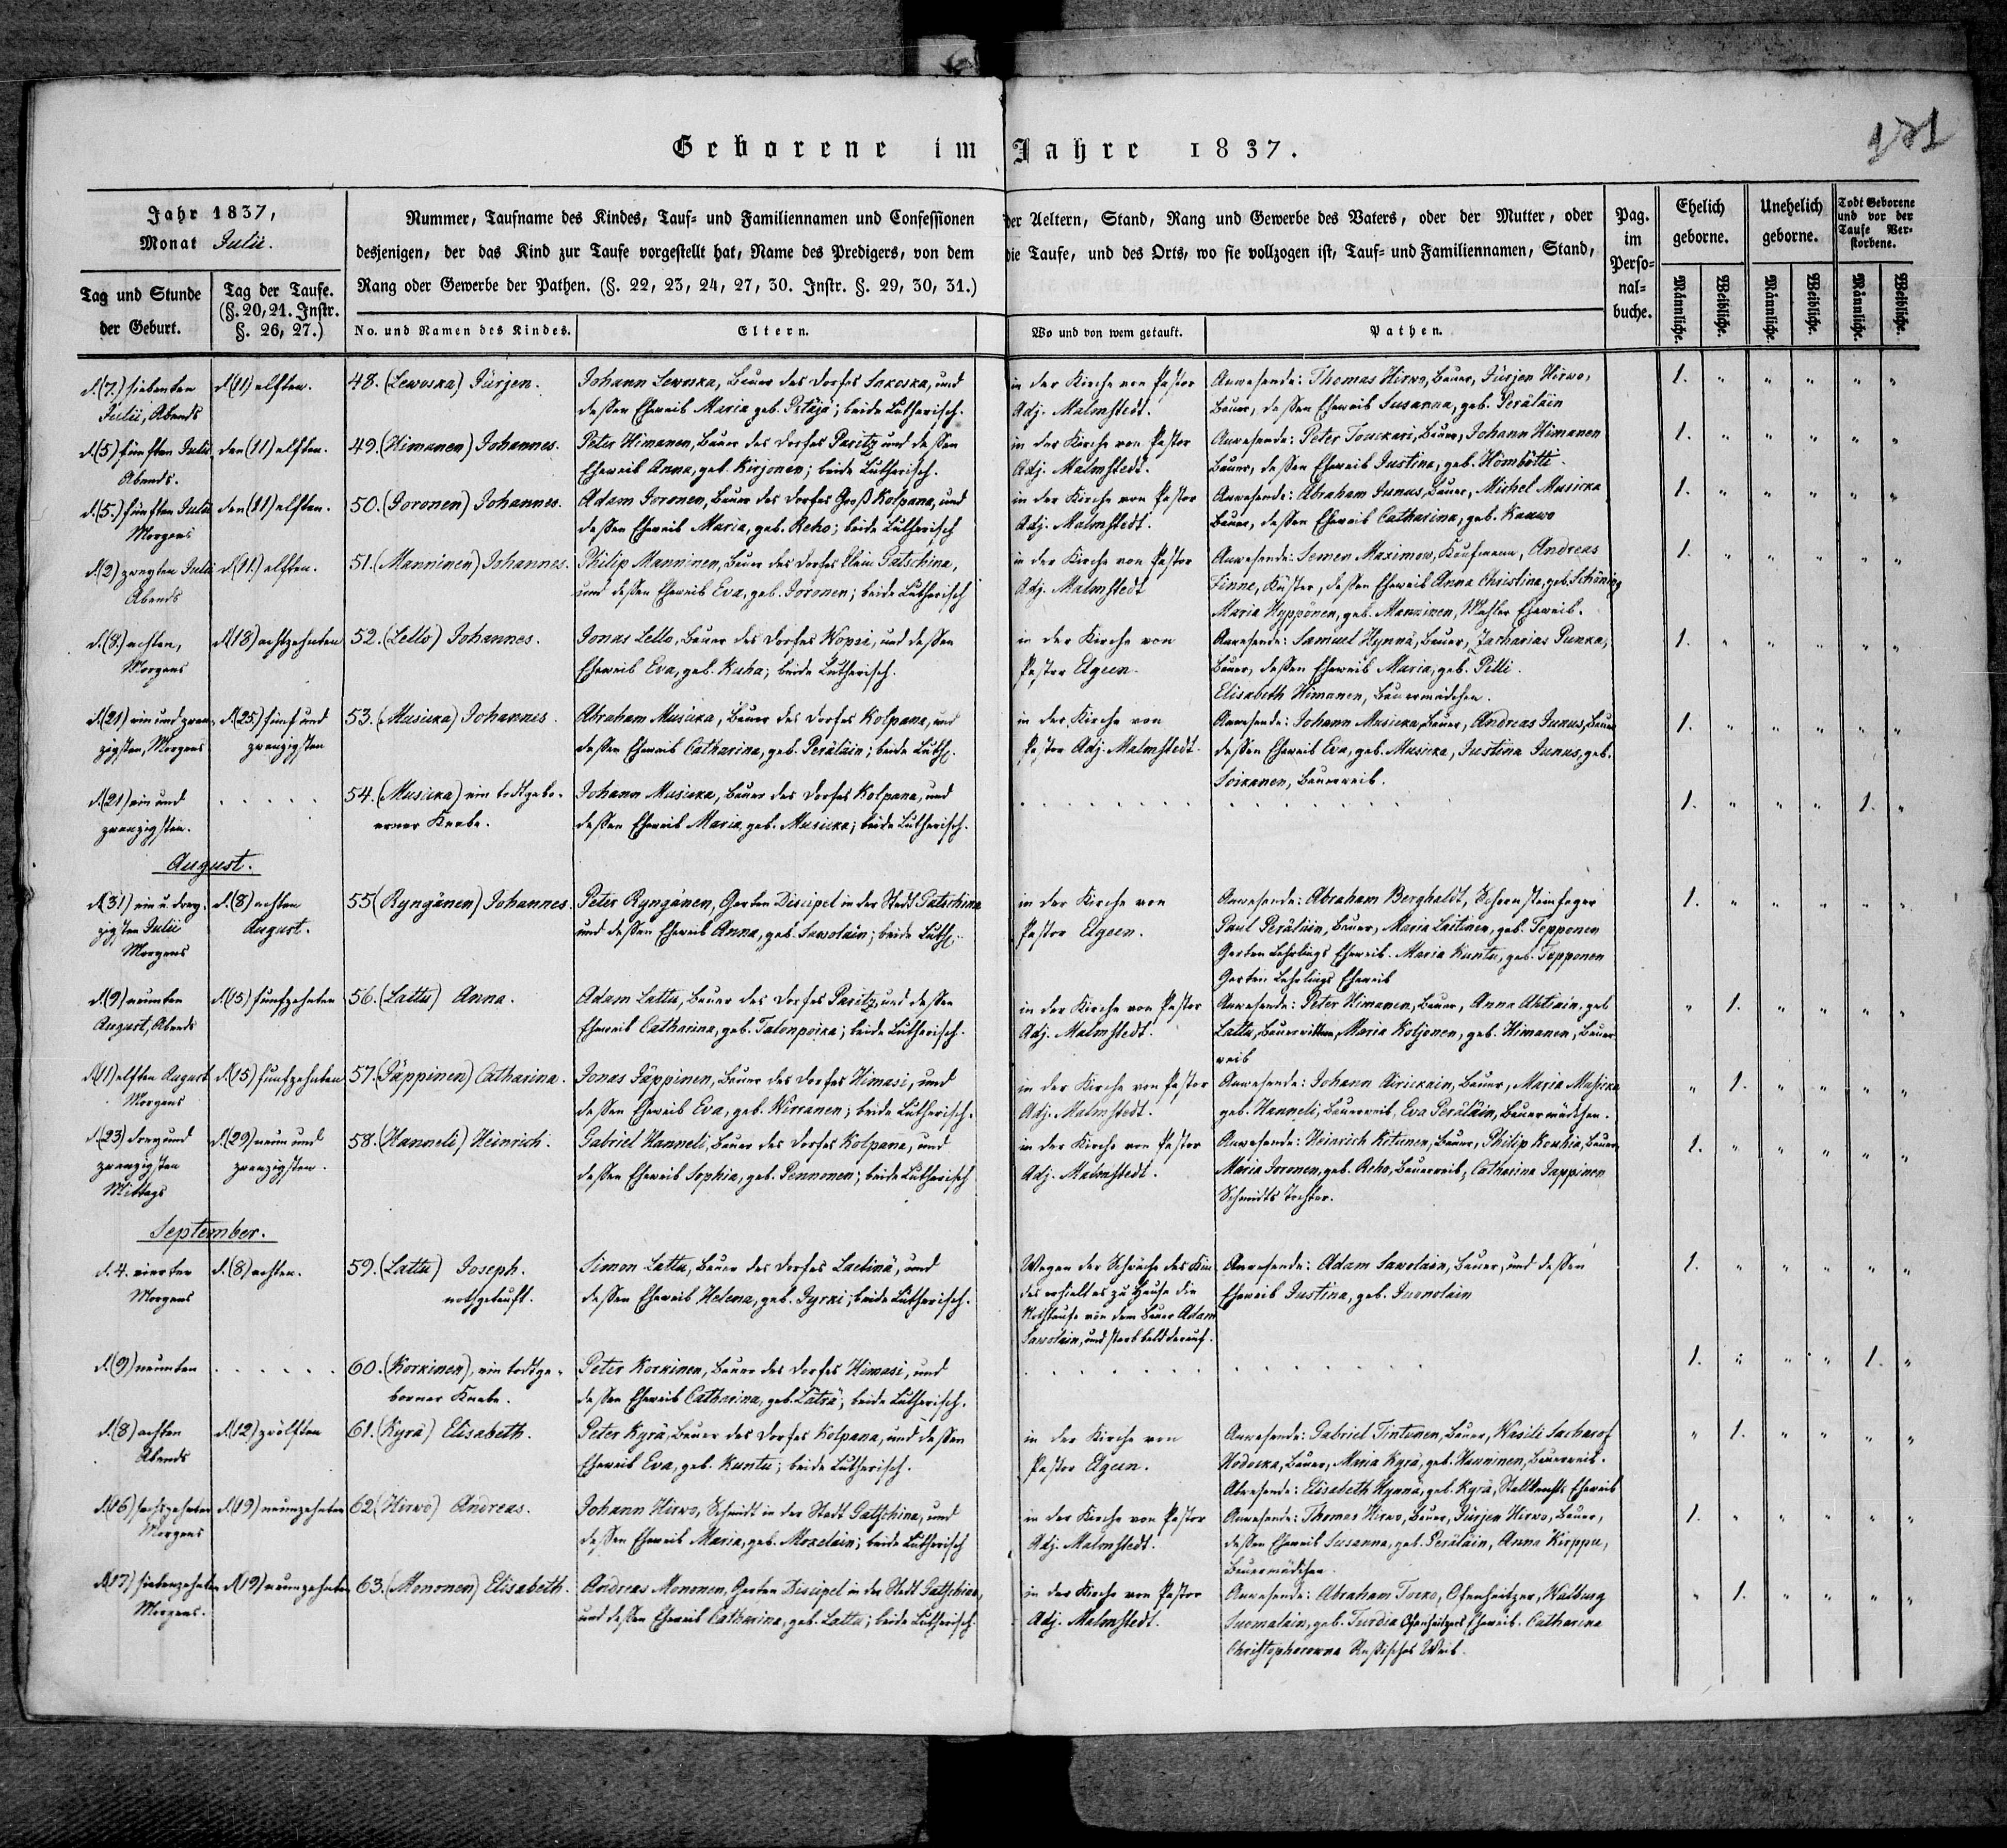 Geborene im Jahre 1837.
Jahr 1837,
Monat Julii.
Nummer, Taufname des Kindes, Tauf- und Familiennamen und Confessionen der Aeltern, Stand, Rang und Gewerbe des Vaters, oder der Mutter, oder
desjenigen, der das Kind zur Taufe vorgestellt hat, Name des Predigers, von dem die Taufe, und des Orts, wo sie vollzogen ist, Tauf- und Familiennamen, Stand,
Rang oder Gewerbe der Pathen. (§. 22, 23, 24, 27, 30. Instr. §. 29, 30, 31.)
Tag und Stunde
der Geburt.
Tag der Taufe.
(§. 20, 21. Instr.
§. 26, 27.)
No. und Namen des Kindes.
Eltern.
Wo und von wem getauft.
Pathen.
Pag.
im
Perso-
nal-
buche.
Ehelich
geborne.
Unehelich
geborne.
Todt Geborene
und vor der
Taufe Ver-
storbene.
Männliche.
Weibliche.
Männliche.
Weibliche.
Männliche.
Weibliche.
d. (7.) siebenten
Julii, Abends
d. (11) elften.
48. (Lewoska) Jürjen.
Johann Lewoska, Bauer des Dorfes Sakoska, und
deßen Eheweib Maria geb. Petäja; beide Lutherisch.
in der Kirche von Pastor
Adj. Malmstedt.
Anwesende: Thomas Hirwo, Bauer, Jürjen Hirwo,
Bauer, deßen Eheweib Susanna, geb. Peräläin
1. " " " " "
d. (5) fünften Julii
Abends.
den (11) elften.
49. (Himanen) Johannes.
Peter Himanen, Bauer des Dorfes Paritz und deßen
Eheweib Anna, geb. Kirjonen; beide Lutherisch.
in der Kirche von Pastor
Adj. Malmstedt.
Anwesende: Peter Touckari, Bauer, Johann Himanen
Bauer, deßen Eheweib Justina, geb. Hömbötti.
1. " " " " "
d. (5.) fünften Julii
Morgens
den (11) elften.
50. (Joronen) Johannes.
Adam Joronen, Bauer des Dorfes Groß Kolpana, und
deßen Eheweib Maria, geb. Reho; beide Lutherisch
in der Kirche von Pastor
Adj. Malmstedt.
Anwesende: Abraham Junus, Bauer, Michel Musicka
Bauer, deßen Eheweib Catharina, geb. Kauwo
1. " " " " "
d. (2) zweyten Julii
Abends
d. (11.) elften.
51. (Manninen) Johannes.
Philip Manninen, Bauer des Dorfes Klein Gatschina,
und deßen Eheweib Eva, geb. Joronen; beide Lutherisch
in der Kirche von Pastor
Adj. Malmstedt
Anwesende: Semen Maximow, Kaufmann, Andreas
Finne, Küster, deßen Eheweib Anna Christina, geb. Schöning
Maria Hyppönen, geb. Manninen, Mahler Eheweib.
1. " " " " "
d. (8.) achten,
Morgens
d. (18) achtzehnten
52. (Lello) Johannes.
Jonas Lello, Bauer des Dorfes Wopsi, und deßen
Eheweib Eva, geb. Kuha; beide Lutherisch.
in der Kirche von
Pastor Elgeen.
Anwesende: Samuel Hynnä, Bauer, Zacharias Punka,
Bauer, deßen Eheweib Maria, geb. Pilli.
Elisabeth Himanen, Bauermädchen.
1. " " " " "
d. (21) ein und zwan-
zigsten, Morgens
d. (25) fünf und
zwanzigsten
53. (Musicka) Johannes.
Abraham Musicka, Bauer des Dorfes Kolpana, und
deßen Eheweib Catharina, geb. Peräläin; beide Luth.
in der Kirche von
Pastor Adj. Malmstedt.
Anwesende: Johann Musicka, Bauer, Andreas Junus, Bauer
deßen Eheweib Eva, geb. Musicka, Justina Junus, geb.
Soikanen, Bauerweib.
1. " " " " "
d. (21) ein und
zwanzigsten.
54. (Musicka) ein todtgebo-
rener Knabe.
Johann Musicka, Bauer des Dorfes Kolpana, und
deßen Eheweib Maria, geb. Musicka; beide Lutherisch.
1. " " " 1. "
August.
d. (31) ein u. drey-
zigsten Julii
Morgens
d. (8) achten
August.
55 (Ryngänen) Johannes.
Peter Ryngänen, Garten Discipel in der Stadt Gatschina
und deßen Eheweib Anna, geb. Sawolain; beide Luth.
in der Kirche von
Pastor Elgeen.
Anwesende: Abraham Berghaldt, Schornsteinfeger
Paul Peräläin, Bauer, Maria Laitinen, geb. Tepponen
Garten Lehrlings Eheweib. Maria Kuntu, geb. Tepponen
Garten Lehrlings Eheweib
1. " " " " "
d. (9) neunten
August, Abends
d. (15) fünfzehnten
56. (Lattu) Anna.
Adam Lattu, Bauer des Dorfes Paritz, und deßen
Eheweib Catharina, geb. Talonpoika; beide Lutherisch.
in der Kirche von Pastor
Adj. Malmstedt.
Anwesende: Peter Himanen, Bauer, Anna Ahtiain, geb
Lattu, Bauerwittwe, Maria Koljonen, geb. Himanen, Bauer-
weib
" 1. " " " "
d. (11) elften August
Morgens
d. (15) fünfzehnten
57. (Päppinen) Catharina.
Jonas Päppinen, Bauer des Dorfes Himasi, und
deßen Eheweib Eva, geb. Wirranen; beide Lutherisch.
in der Kirche von Pastor
Adj. Malmstedt.
Anwesende: Johann Airickain, Bauer, Maria Musicka
geb. Hanneli, Bauerweib, Eva Peräläin, Bauermädchen.
" 1. " " " "
d. (23) drey und
zwanzigsten
Mittags
d. (29) neun und
zwanzigsten.
58. (Hanneli) Heinrich.
Gabriel Hanneli, Bauer des Dorfes Kolpana, und
deßen Eheweib Sophia, geb. Pennonen; beide Lutherisch
in der Kirche von Pastor
Adj. Malmstedt.
Anwesende: Heinrich Kitunen, Bauer, Philip Koukia, Bauer
Maria Joronen, geb. Reho, Bauerweib, Catharina Pappinen
Schmidts Tochter.
1. " " " " "
September.
d. 4. vierten
Morgens
d. (8) achten.
59. (Lattu) Joseph.
nothgetauft.
Simon Lattu, Bauer des Dorfes Laetinä, und
deßen Eheweib Helena, geb. Pyrki; beide Lutherisch.
Wegen der Schwäche des Kin
des erhielt es zu Hause die
Nothtaufe von dem Bauer Adam
Sawolain, und starb bald darauf.
Anwesende: Adam Sawolain, Bauer, und deßen
Eheweib Justina, geb. Juonolain
1. " " " " "
d. (9) neunten
60. (Korkinen), ein todtge-
borner Knabe.
Peter Korkinen, Bauer des Dorfes Himasi, und
deßen Eheweib Catharina, geb. Läträ; beide Lutherisch.
1. " " " 1. "
d. (8) achten
Abends
d. (12) zwölften
61. (Kyrä) Elisabeth.
Peter Kyrä, Bauer des Dorfes Kolpana, und deßen
Eheweib Eva, geb. Kuntu; beide Lutherisch.
in der Kirche von
Pastor Elgeen.
Anwesende: Gabriel Tintunen, Bauer, Wasili Sacharof
Hodocka, Bauer, Maria Kyrä, geb. Hanninen, Bauerweib.
Abwesende: Elisabeth Hynnä, geb. Kyrä, Stallknechts Eheweib
" 1. " " " "
d. (16) sechzehnten
Morgens
d. (19) neunzehnten
62. (Hirwo) Andreas.
Johann Hirwo, Schmidt in der Stadt Gatschina, und
deßen Eheweib Maria, geb. Mokelain; beide Lutherisch
in der Kirche von Pastor
Adj. Malmstedt.
Anwesende: Thomas Hirwo, Bauer, Jürjen Hirwo, Bauer,
deßen Eheweib Susanna, geb. Peräläin, Anna Kirppu,
Bauermädchen.
1. " " " " "
d. (17) siebenzehnten
Morgens.
d. (19) neunzehnten
63. (Mononen) Elisabeth.
Andreas Mononen, Garten Discipel in der Stadt Gatschina,
und deßen Eheweib Catharina, geb. Lattu; beide Lutherisch.
in der Kirche von Pastor
Adj. Malmstedt.
Anwesende: Abraham Torko, Ofenheitzer, Walburg
Suomalain, geb. Turdia Ofenheitzers Eheweib. Catharina
Christophorowna Rußisches Weib.
" 1. " " " "